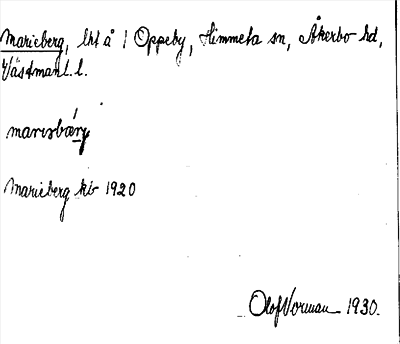 Marieberg, lht å 1 Oppeby, Himmeta sn, Åkerbo hd,
Västmanl. l.
marɪsbærj
Marieberg kb 1920
Olof Vorman 1930.